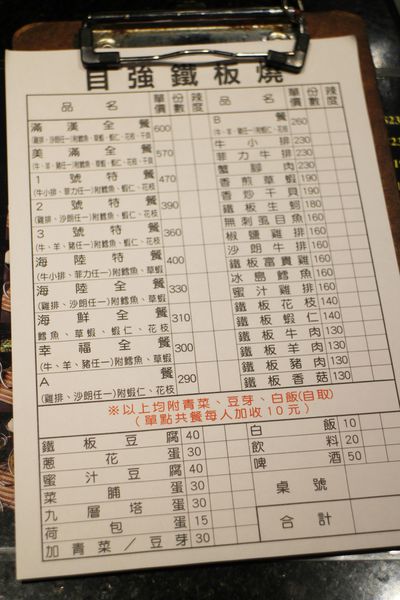 自強鐵板燒
品名 單價 份數 辣度
滿漢全餐 600
美滿全餐 570
1號特餐 470
(牛小排、菲力任一)附鱈魚、蝦仁、花枝
2號特餐 390
(雞排、沙朗任一)附鱈魚、蝦仁、花枝
3號特餐 360
(牛、羊、豬任一)附鱈魚、蝦仁、花枝
海陸特餐 400
(牛小排、菲力任一)附鱈魚、草蝦
海陸全餐 330
(雞排、沙朗任一)附鱈魚、草蝦
海鮮全餐 310
鱈魚、草蝦、蝦仁、花枝
幸福全餐 300
(牛、羊、豬任一)附鱈魚、草蝦
A餐 290
(雞排、沙朗任一)附蝦仁、花枝
品名 單價 份數 辣度
B餐 260
(牛、羊、豬任一)附蝦仁、花枝
牛小排 230
菲力牛排 230
蟹腳肉 230
香煎草蝦 190
香炒干貝 190
鐵板生蚵 180
無刺虱目魚 160
椒鹽雞排 160
沙朗牛排 160
鐵板富貴雞 160
冰島鱈魚 160
蜜汁雞排 160
鐵板花枝 140
鐵板蝦仁 140
鐵板牛肉 130
鐵板羊肉 130
鐵板豬肉 130
鐵板香菇 130
※以上均附青菜、豆芽、白飯(自取)
(單點共餐每人加收10元)
鐵板豆腐 40
蔥花蛋 30
蜜汁豆腐 40
菜脯蛋 30
九層塔蛋 30
荷包蛋 15
加青菜／豆芽 30
白飯 10
飲料 20
啤酒 50
桌號
合計